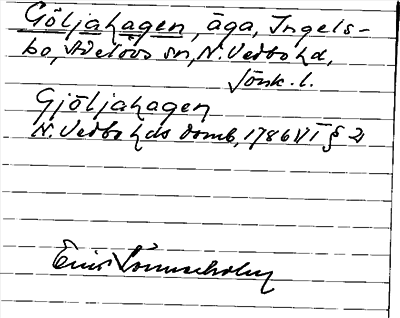 Göljahagen, äga, Ingels-
bo, Adelövs sn, N. Vedbo hd,
Jönk. l.
Gjöljahagen
N. Vedbo hds domb, 1786 VI § 21
Eric